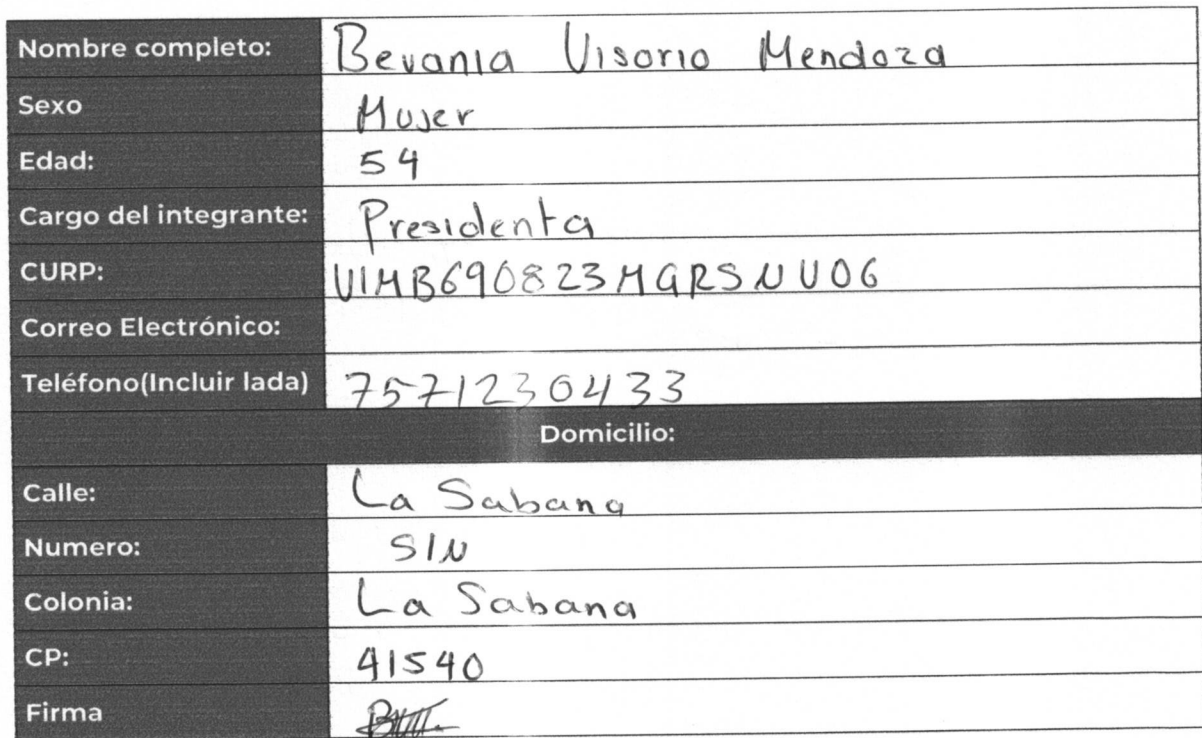 Nombre completo: Bevania Visorio Mendoza
Sexo Mujer
Edad: 54
Cargo del integrante: Presidenta
CURP: VIMB690823MGRSNV06
Correo Electrónico:
Teléfono(Incluir lada) 7571230433
Domicilio:
Calle: La Sabana
Numero: S/N
Colonia: La Sabana
CP: 41540
Firma